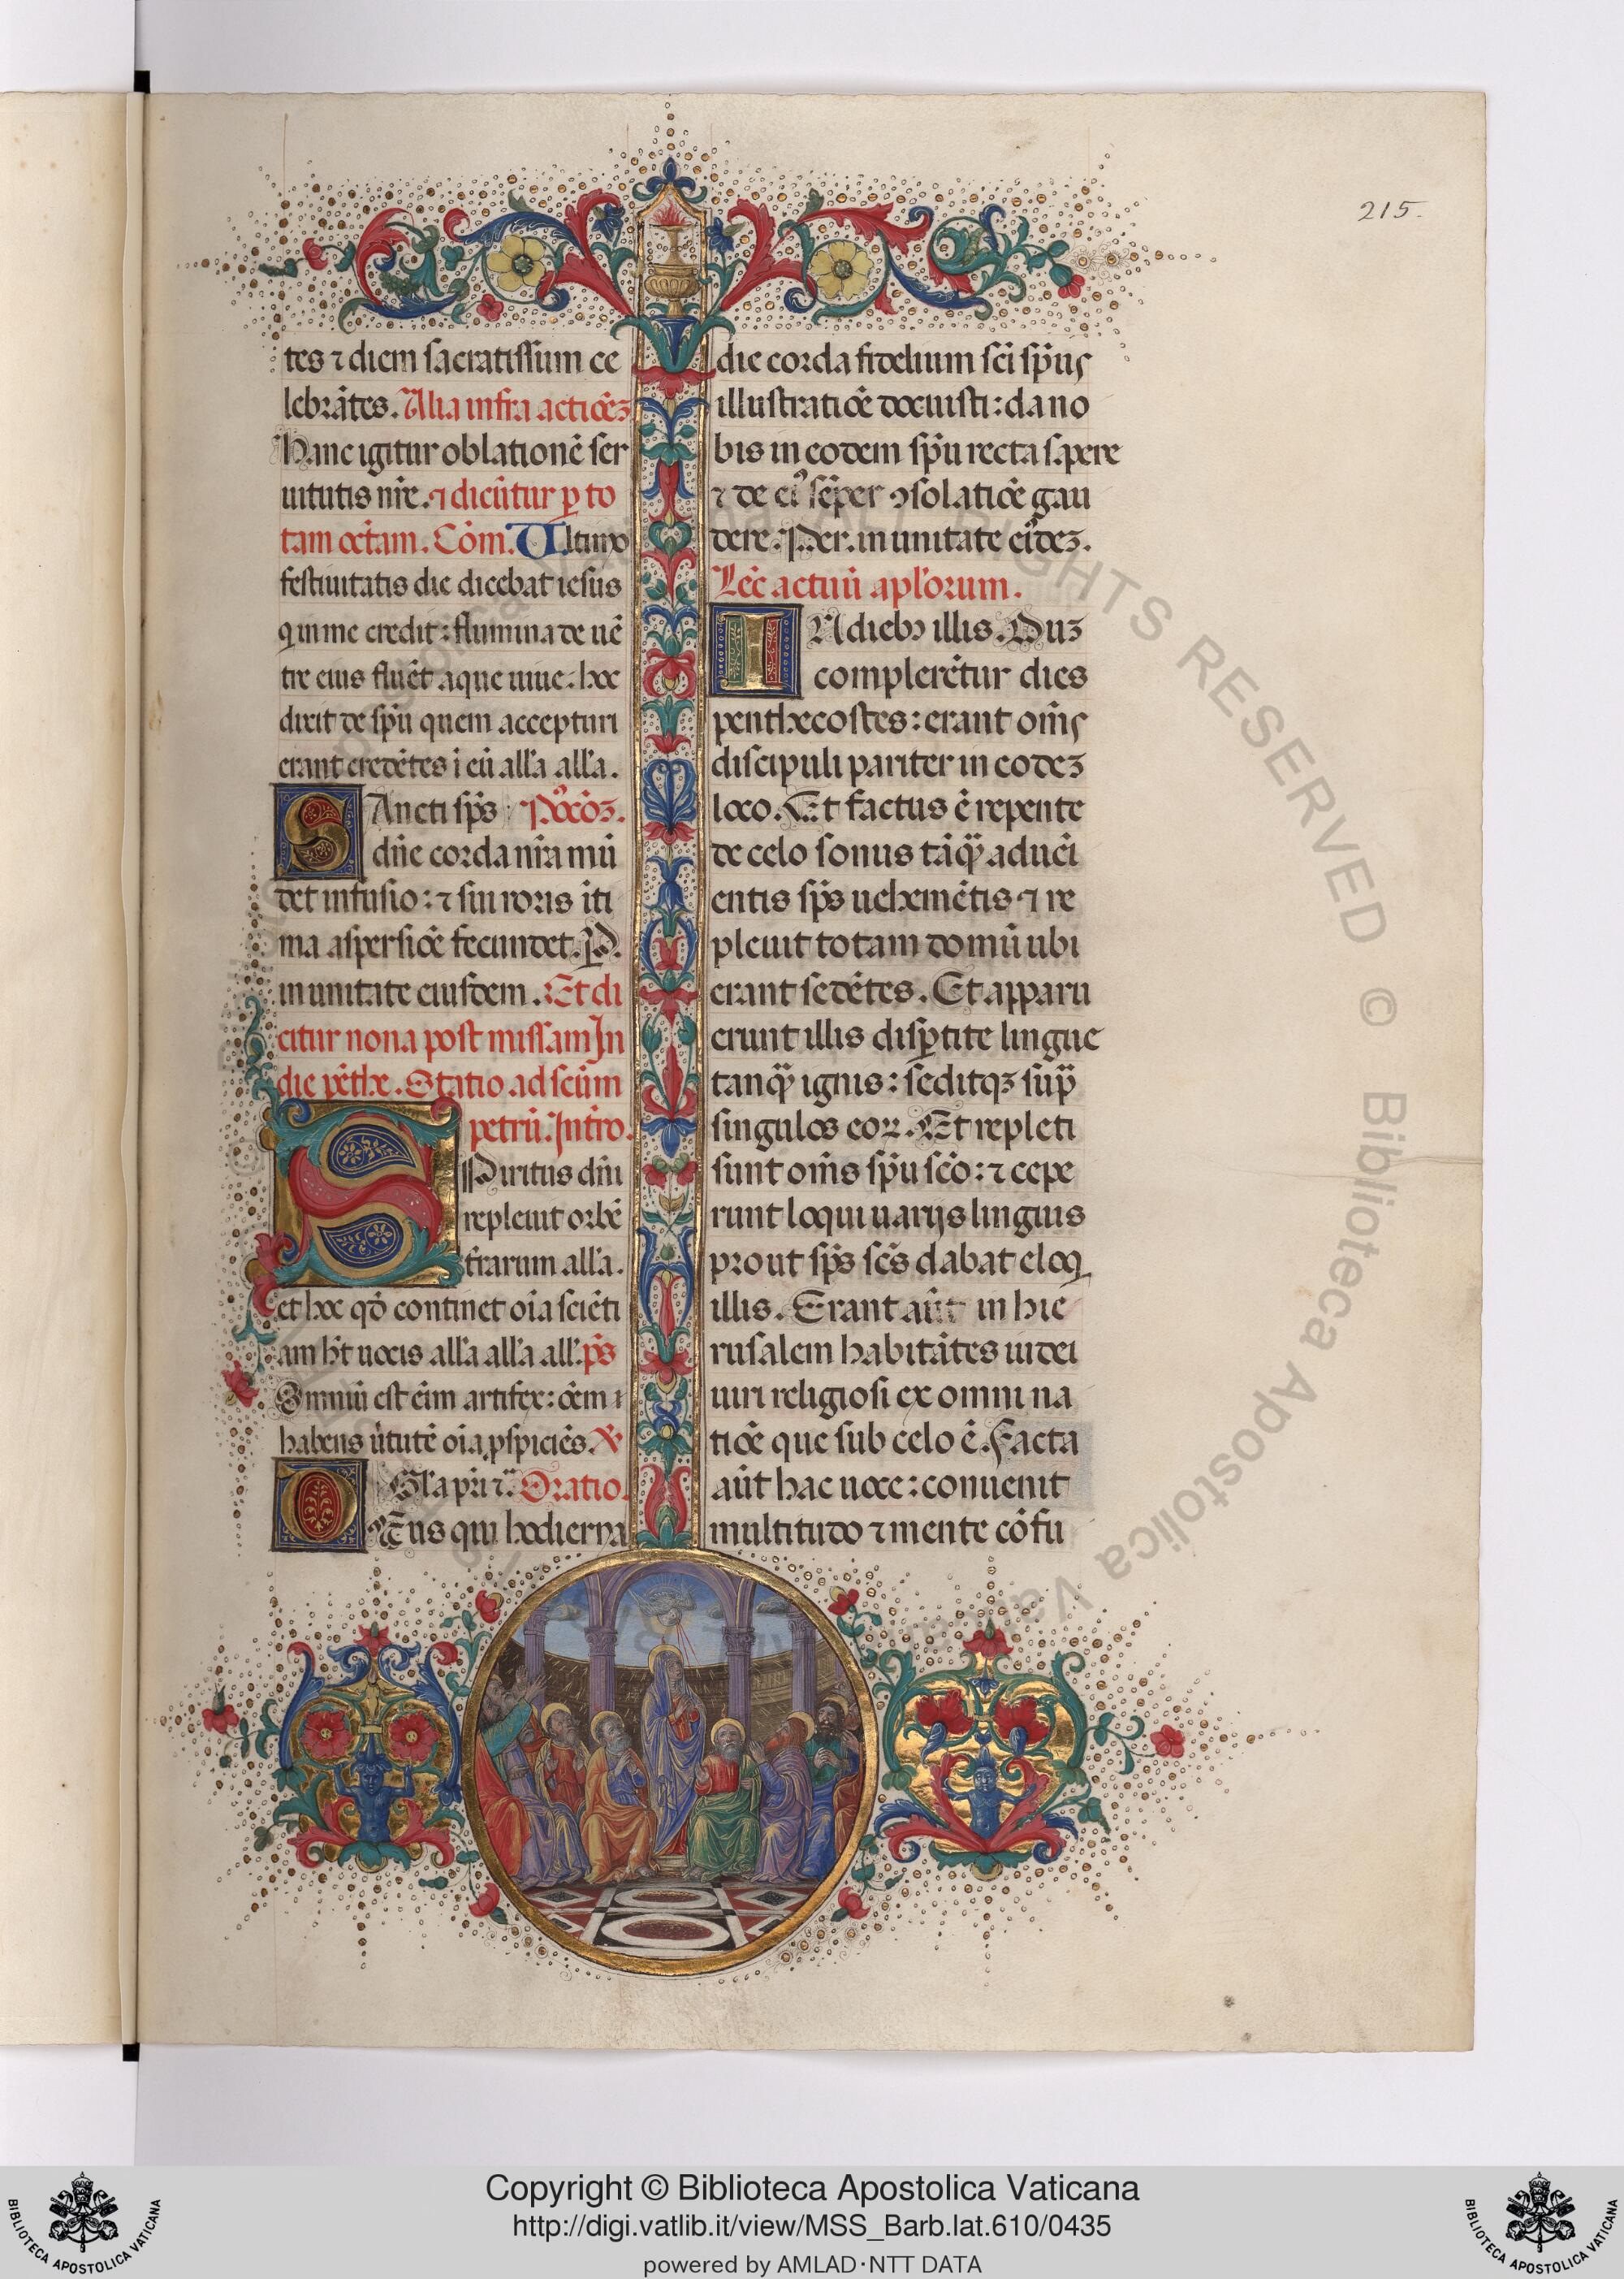 215.
tes ⁊ diem sacratissium ce
lebrãtes. Alia infra actiõeʒ
Hanc igitur oblationẽ ser
uitutis nr̃e. ⁊ dicũtur ꝑ to
tam octam. Cõm. Ultimo
festiuitatis die dicebat iesus
qui in me credit: flumina de uẽ
tre eius fluẽt aque uiue. hoc
dixit de sp̃u quem accepturi
erant credẽtes ĩ eũ all'a all'a.
SAncti sp̃s Po'cõʒ.
dñe corda nr̃a mũ
det infusio: ⁊ sui roris ĩti
ma aspersiõe fecundet. P.
in unitate eiusdem. Et di
citur nona post missam In
die pẽthe. Statio ad scũm
petrũ. Intro.
SPiritus dñi
repleuit orbẽ
terrarum all'a.
et hoc qđ continet oĩa sciẽti
am h̃t uocis all'a all'a all'. p̃s
Omniũ est eĩm artifex: oẽm
habens uĩtutẽ oĩa ꝓspiciẽs. ℣
Gl'a pr̃i ⁊c̃. Oratio.
DEus qui hodierna
die corda fidelium sc̃i sp̃us
illustratiõe docuisti: da no
bis in eodem sp̃u recta sapere
⁊ de ei' sẽper ꝯsolatiõe gau
dere. Per. in unitate ei'deʒ.
Lec̃ actuũ apl'orum.
IN diebꝰ illis. Duʒ
complerẽtur dies
penthecostes: erant om̃s
discipuli pariter in eodeʒ
loco. Et factus ẽ repente
de celo sonus tãq̃ aduẽi
entis sp̃s uehemẽtis ⁊ re
pleuit totam domũ ubi
erant sedẽtes. Et apparu
erunt illis disꝑtite lingue
tanq̃ ignis: seditqʒ sup̃
singulos eoꝝ. Et repleti
sunt om̃s sp̃u sc̃o: ⁊ cepe
runt loqui uarijs linguis
prout sp̃s sc̃s dabat eloq
illis. Erant aũt in hie
rusalem habitãtes iudei
uiri religiosi ex omni na
tiõe que sub celo ẽ. Facta
aũt hac uoce: conuenit
multitudo ⁊ mente cõfu
ALL RIGHTS RESERVED © Biblioteca Apostolica Vaticana
Copyright © Biblioteca Apostolica Vaticana
http://digi.vatlib.it/view/MSS_Barb.lat.610/0435
powered by AMLAD·NTT DATA
BIBLIOTECA APOSTOLICA VATICANA
BIBLIOTECA APOSTOLICA VATICANA